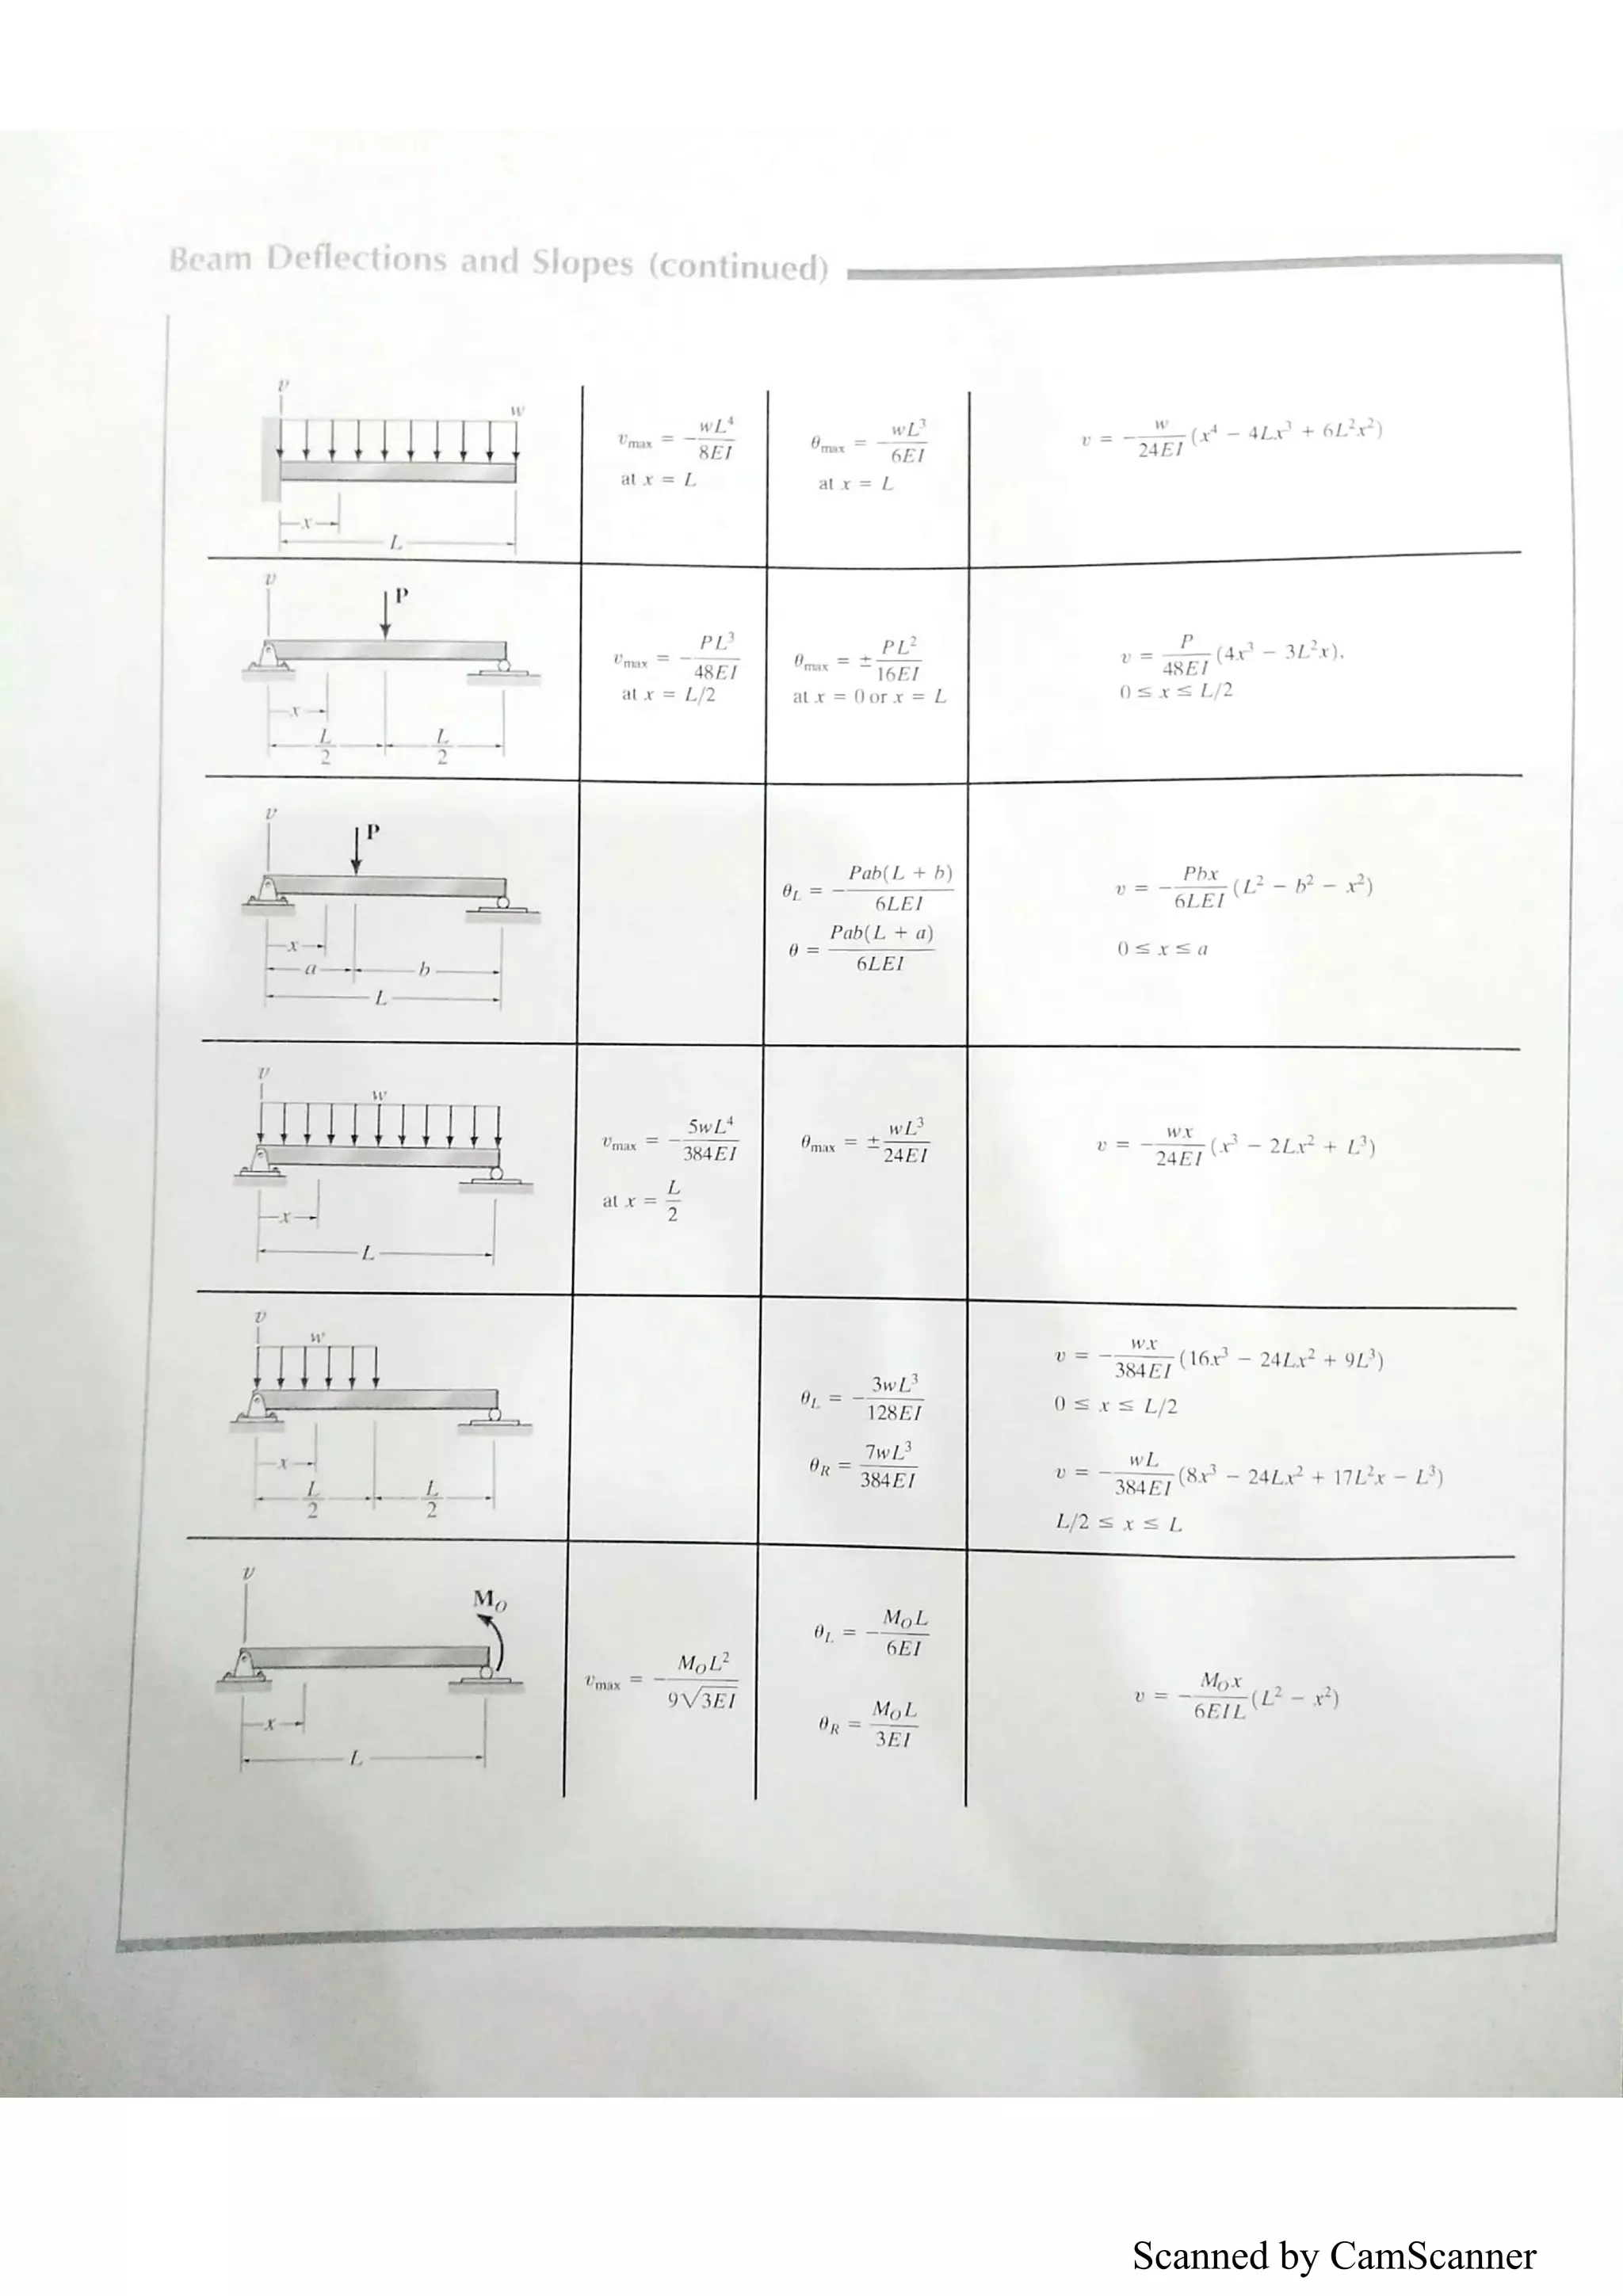 Beam Deflections and Slopes (continued)
v
w
x
L
v_max = -wL⁴/8EI
at x = L
θ_max = -wL³/6EI
at x = L
v = -w/24EI (x⁴ - 4Lx³ + 6L²x²)
v
P
x
L/2 L/2
v_max = -PL³/48EI
at x = L/2
θ_max = ±PL²/16EI
at x = 0 or x = L
v = P/48EI (4x³ - 3L²x),
0 ≤ x ≤ L/2
v
P
x
a b
L
θ_L = -Pab(L + b)/6LEI
θ = Pab(L + a)/6LEI
v = -Pbx/6LEI (L² - b² - x²)
0 ≤ x ≤ a
v
w
x
L
v_max = -5wL⁴/384EI
at x = L/2
θ_max = ±wL³/24EI
v = -wx/24EI (x³ - 2Lx² + L³)
v
w
x
L/2 L/2
θ_L = -3wL³/128EI
θ_R = 7wL³/384EI
v = -wx/384EI (16x³ - 24Lx² + 9L³)
0 ≤ x ≤ L/2
v = -wL/384EI (8x³ - 24Lx² + 17L²x - L³)
L/2 ≤ x ≤ L
v
M_O
x
L
v_max = -M_OL²/9√3EI
θ_L = -M_OL/6EI
θ_R = M_OL/3EI
v = -M_Ox/6EIL (L² - x²)
Scanned by CamScanner